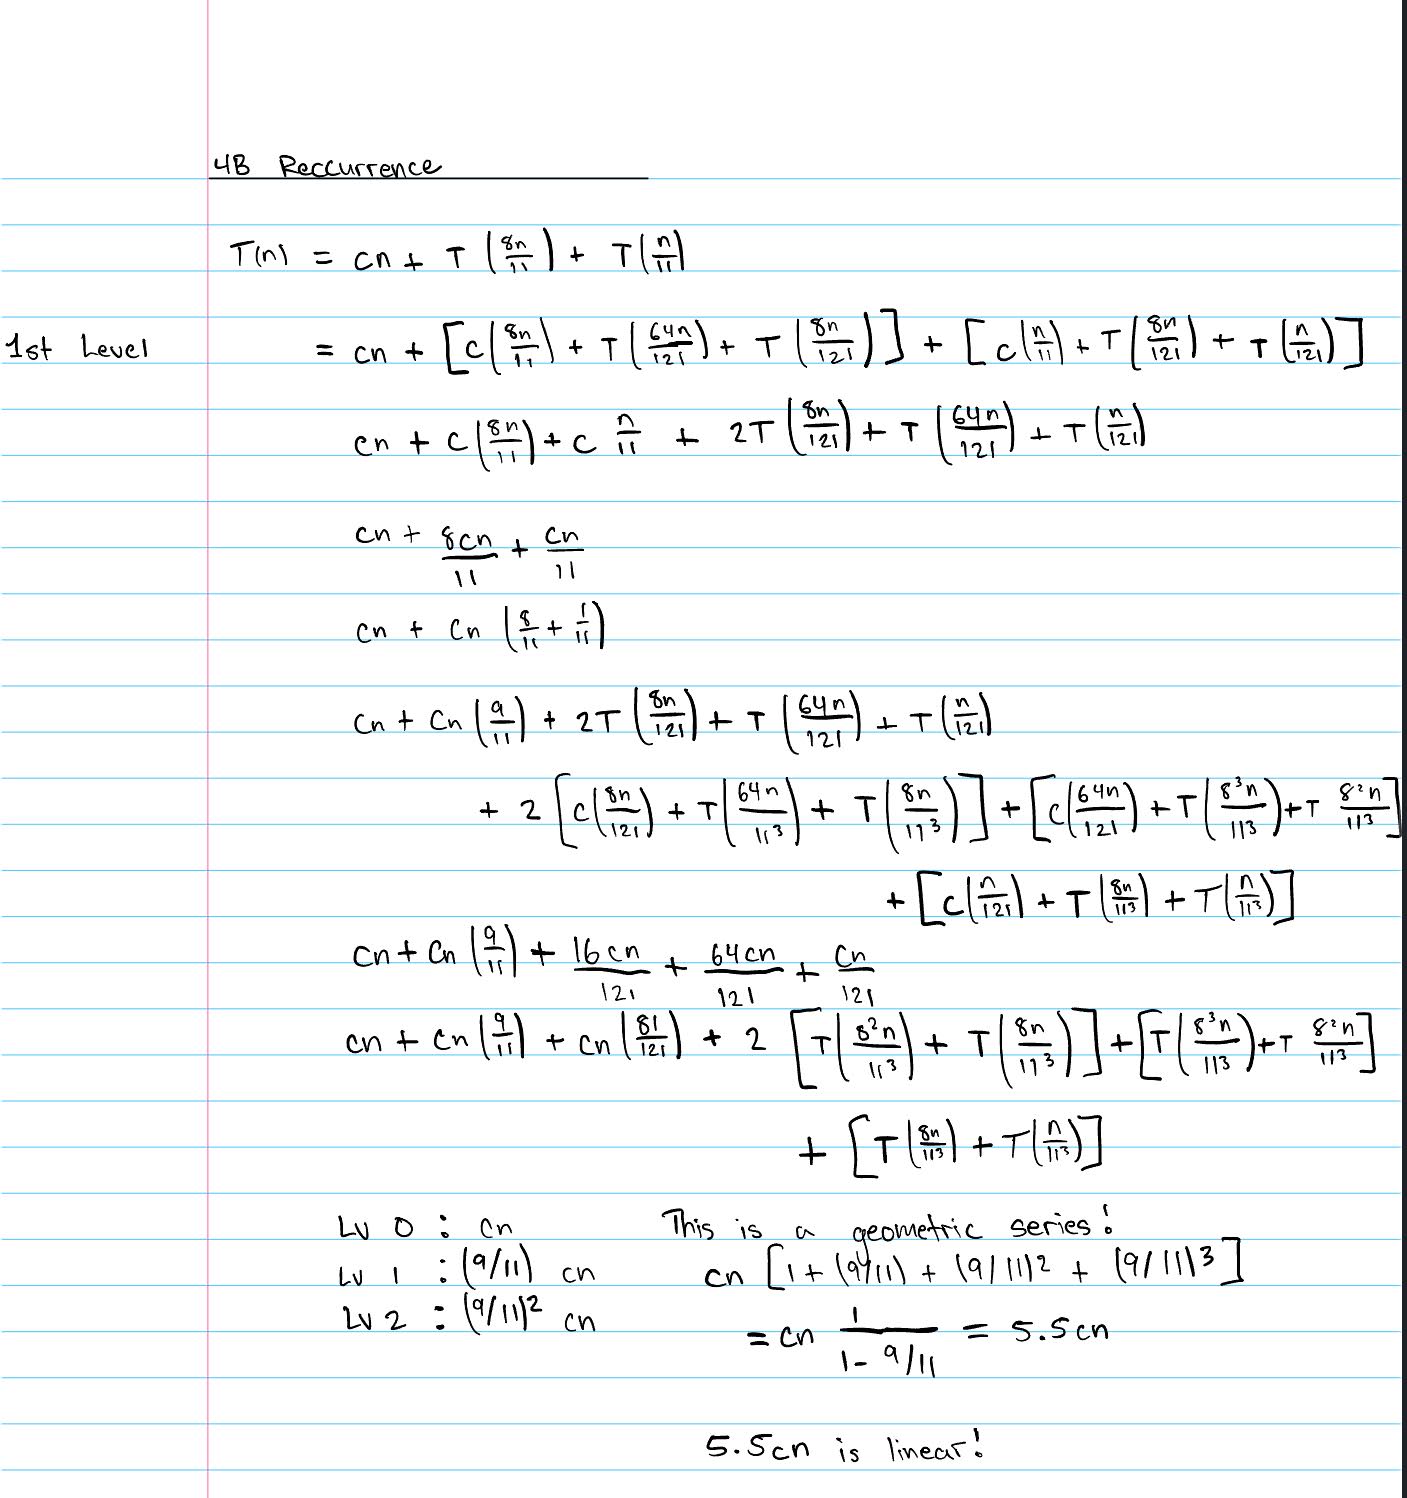 4B Reccurrence
T(n) = cn + T (8n/11) + T(n/11)
1st Level = cn + [c(8n/11) + T(64n/121) + T(8n/121)] + [c(n/11) + T(8n/121) + T(n/121)]
cn + c(8n/11) + c n/11 + 2T(8n/121) + T(64n/121) + T(n/121)
cn + 8cn/11 + cn/11
cn + cn (8/11 + 1/11)
cn + cn (9/11) + 2T(8n/121) + T(64n/121) + T(n/121)
+ 2 [c(8n/121) + T(64n/11³) + T(8n/11³)] + [c(64n/121) + T(8³n/11³) + T 8²n/11³]
+ [c(n/121) + T(8n/11³) + T(n/11³)]
cn + cn (9/11) + 16cn/121 + 64cn/121 + cn/121
cn + cn (9/11) + cn (81/121) + 2 [T(8²n/11³) + T(8n/11³)] + [T(8³n/11³) + T 8²n/11³]
+ [T(8n/11³) + T(n/11³)]
Lv 0 : cn
Lv 1 : (9/11) cn
Lv 2 : (9/11)² cn
This is a geometric series!
cn [1 + (9/11) + (9/11)² + (9/11)³]
= cn 1/(1 - 9/11) = 5.5cn
5.5cn is linear!